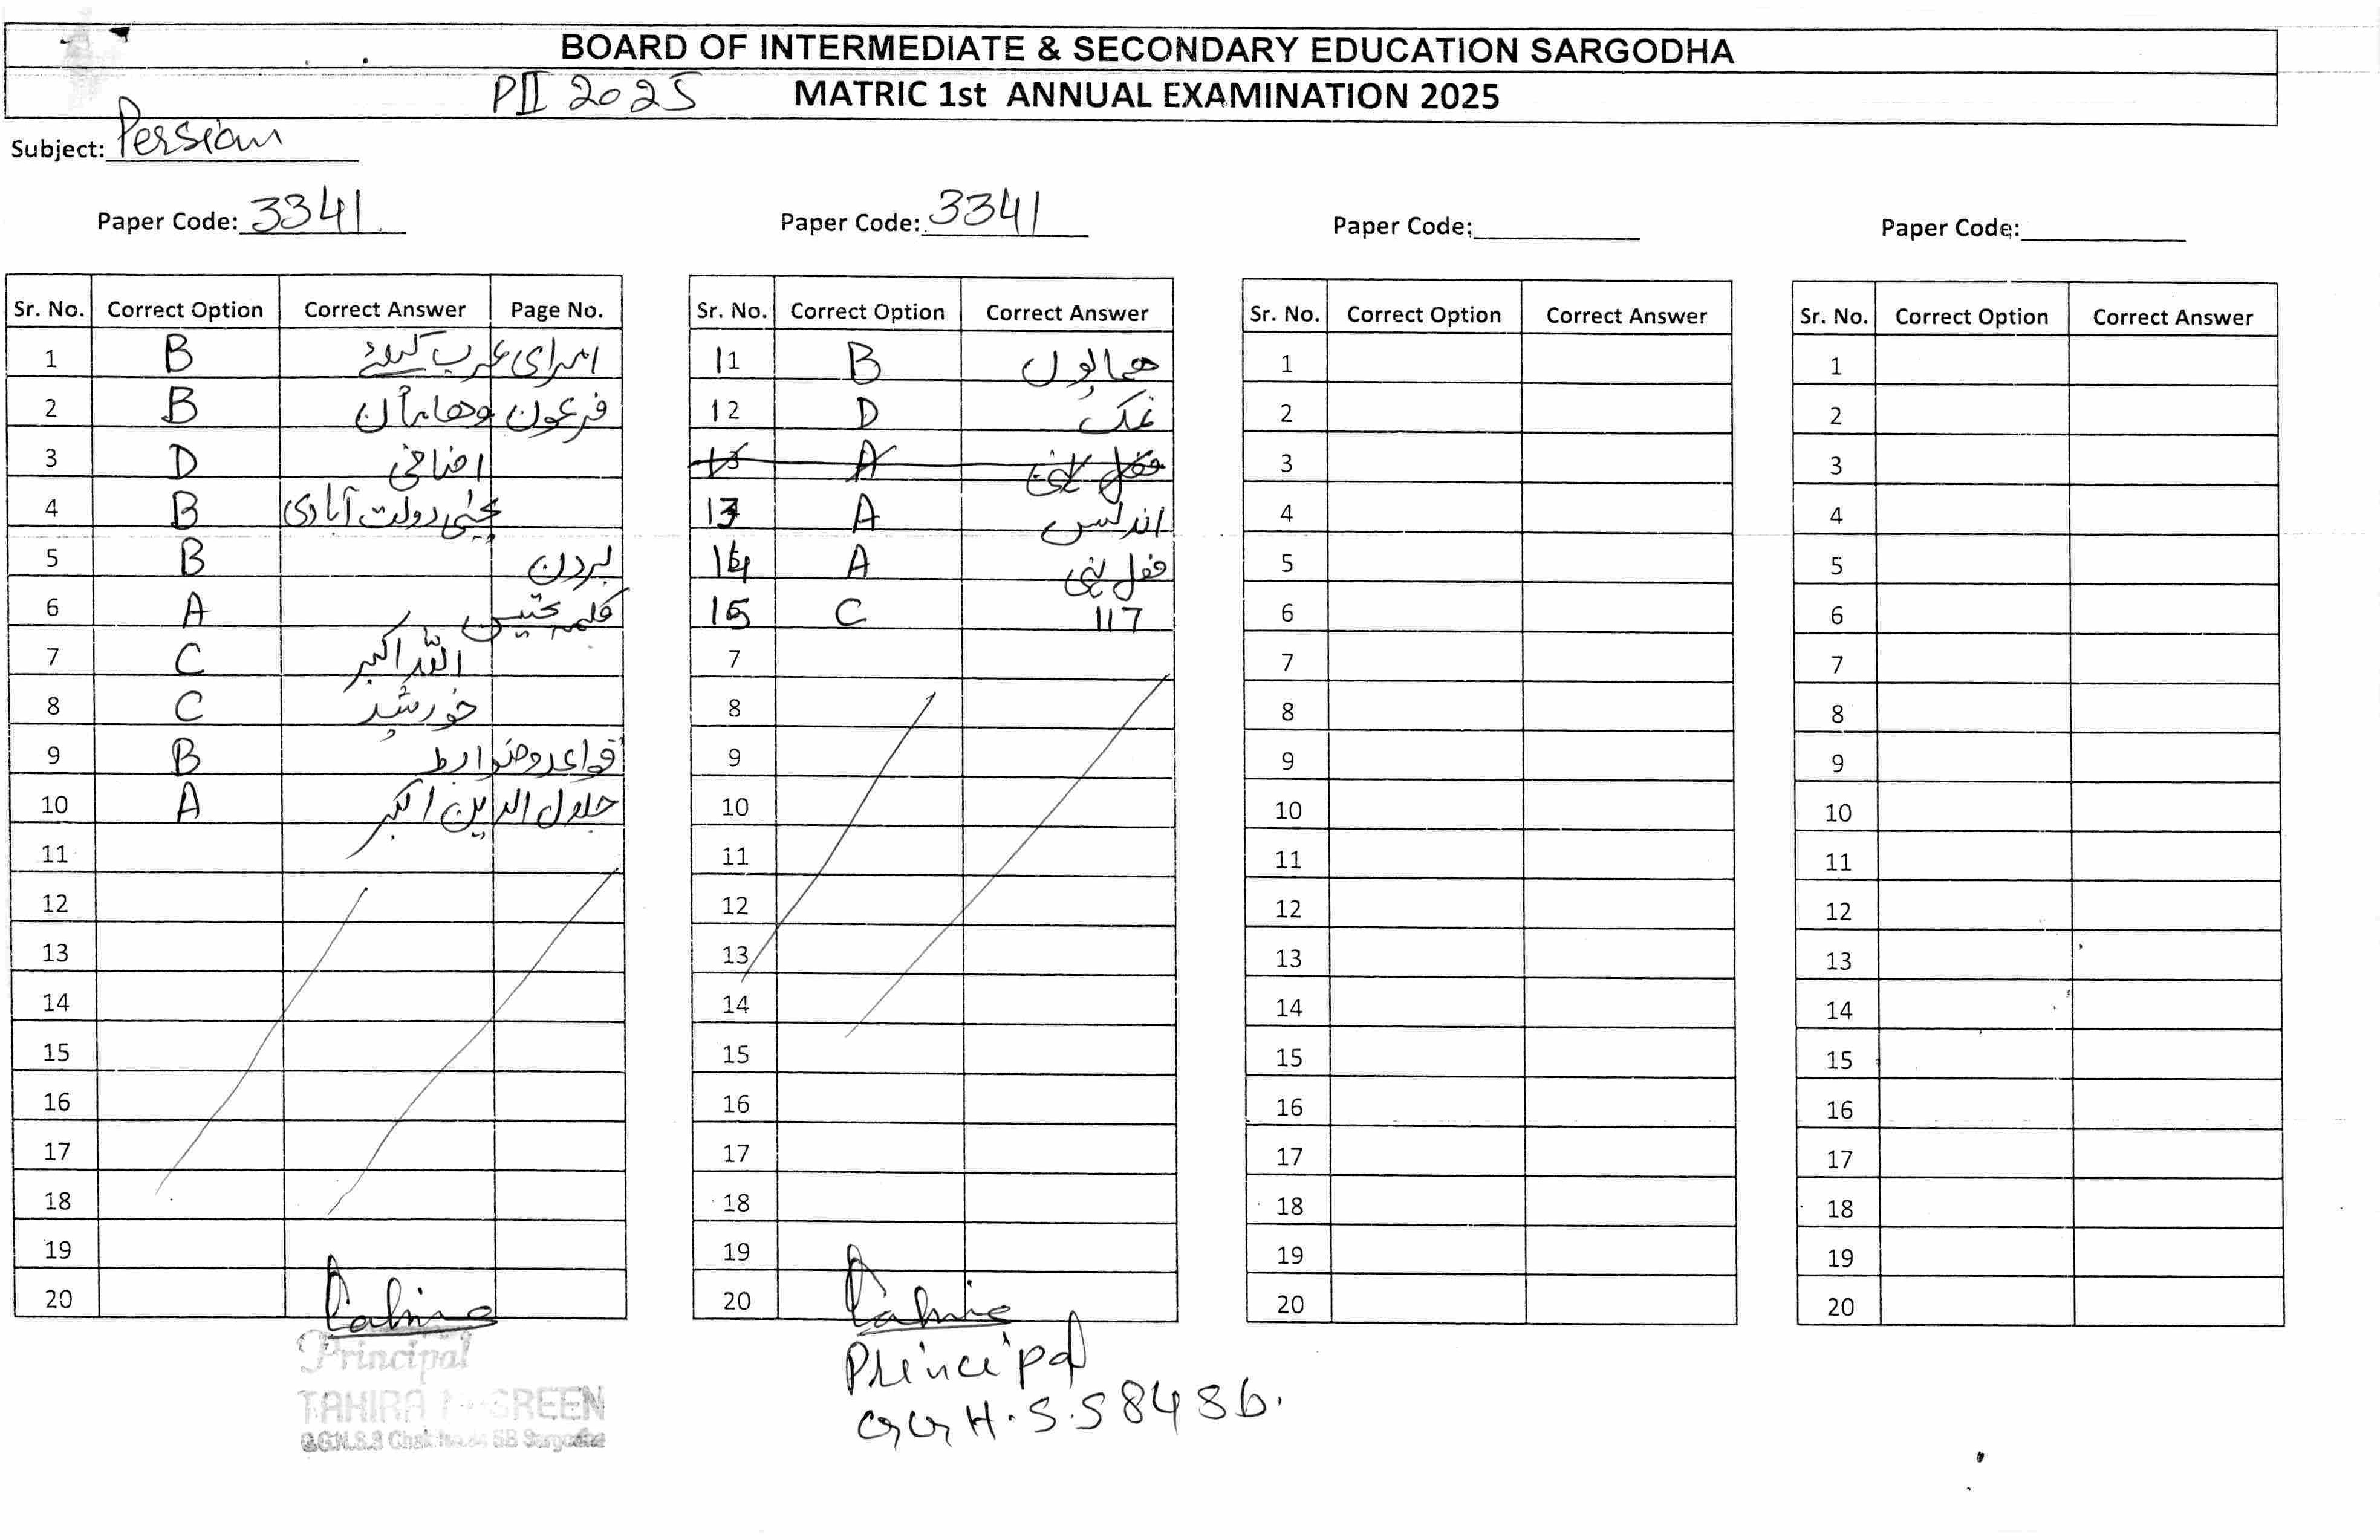 BOARD OF INTERMEDIATE & SECONDARY EDUCATION SARGODHA
PII 2025 MATRIC 1st ANNUAL EXAMINATION 2025
Subject: Persian
Paper Code: 3341 Paper Code: 3341 Paper Code: Paper Code:
Sr. No. Correct Option Correct Answer Page No. Sr. No. Correct Option Correct Answer Sr. No. Correct Option Correct Answer Sr. No. Correct Option Correct Answer
1 B امرای عرب کیلئے 11 B همایوں 1 1
2 B فرعون وهامان 12 D نمک 2 2
3 D اضافی 13 A 3 3
4 B یحییٰ دولت آبادی 13 A اندلس 4 4
5 B بردن 14 A فعل نہی 5 5
6 A کلمہ تحسین 15 C 117 6 6
7 C اللہ اکبر 7 7 7
8 C خورشید 8 8 8
9 B قواعد و ضوابط 9 9 9
10 A جلال الدین اکبر 10 10 10
11 11 11 11
12 12 12 12
13 13 13 13
14 14 14 14
15 15 15 15
16 16 16 16
17 17 17 17
18 18 18 18
19 19 19 19
20 20 20 20
Principal Principal
TAHIRA
G.G.H.S.S Chak SB Sargodha G G H.S.S 84 SB.